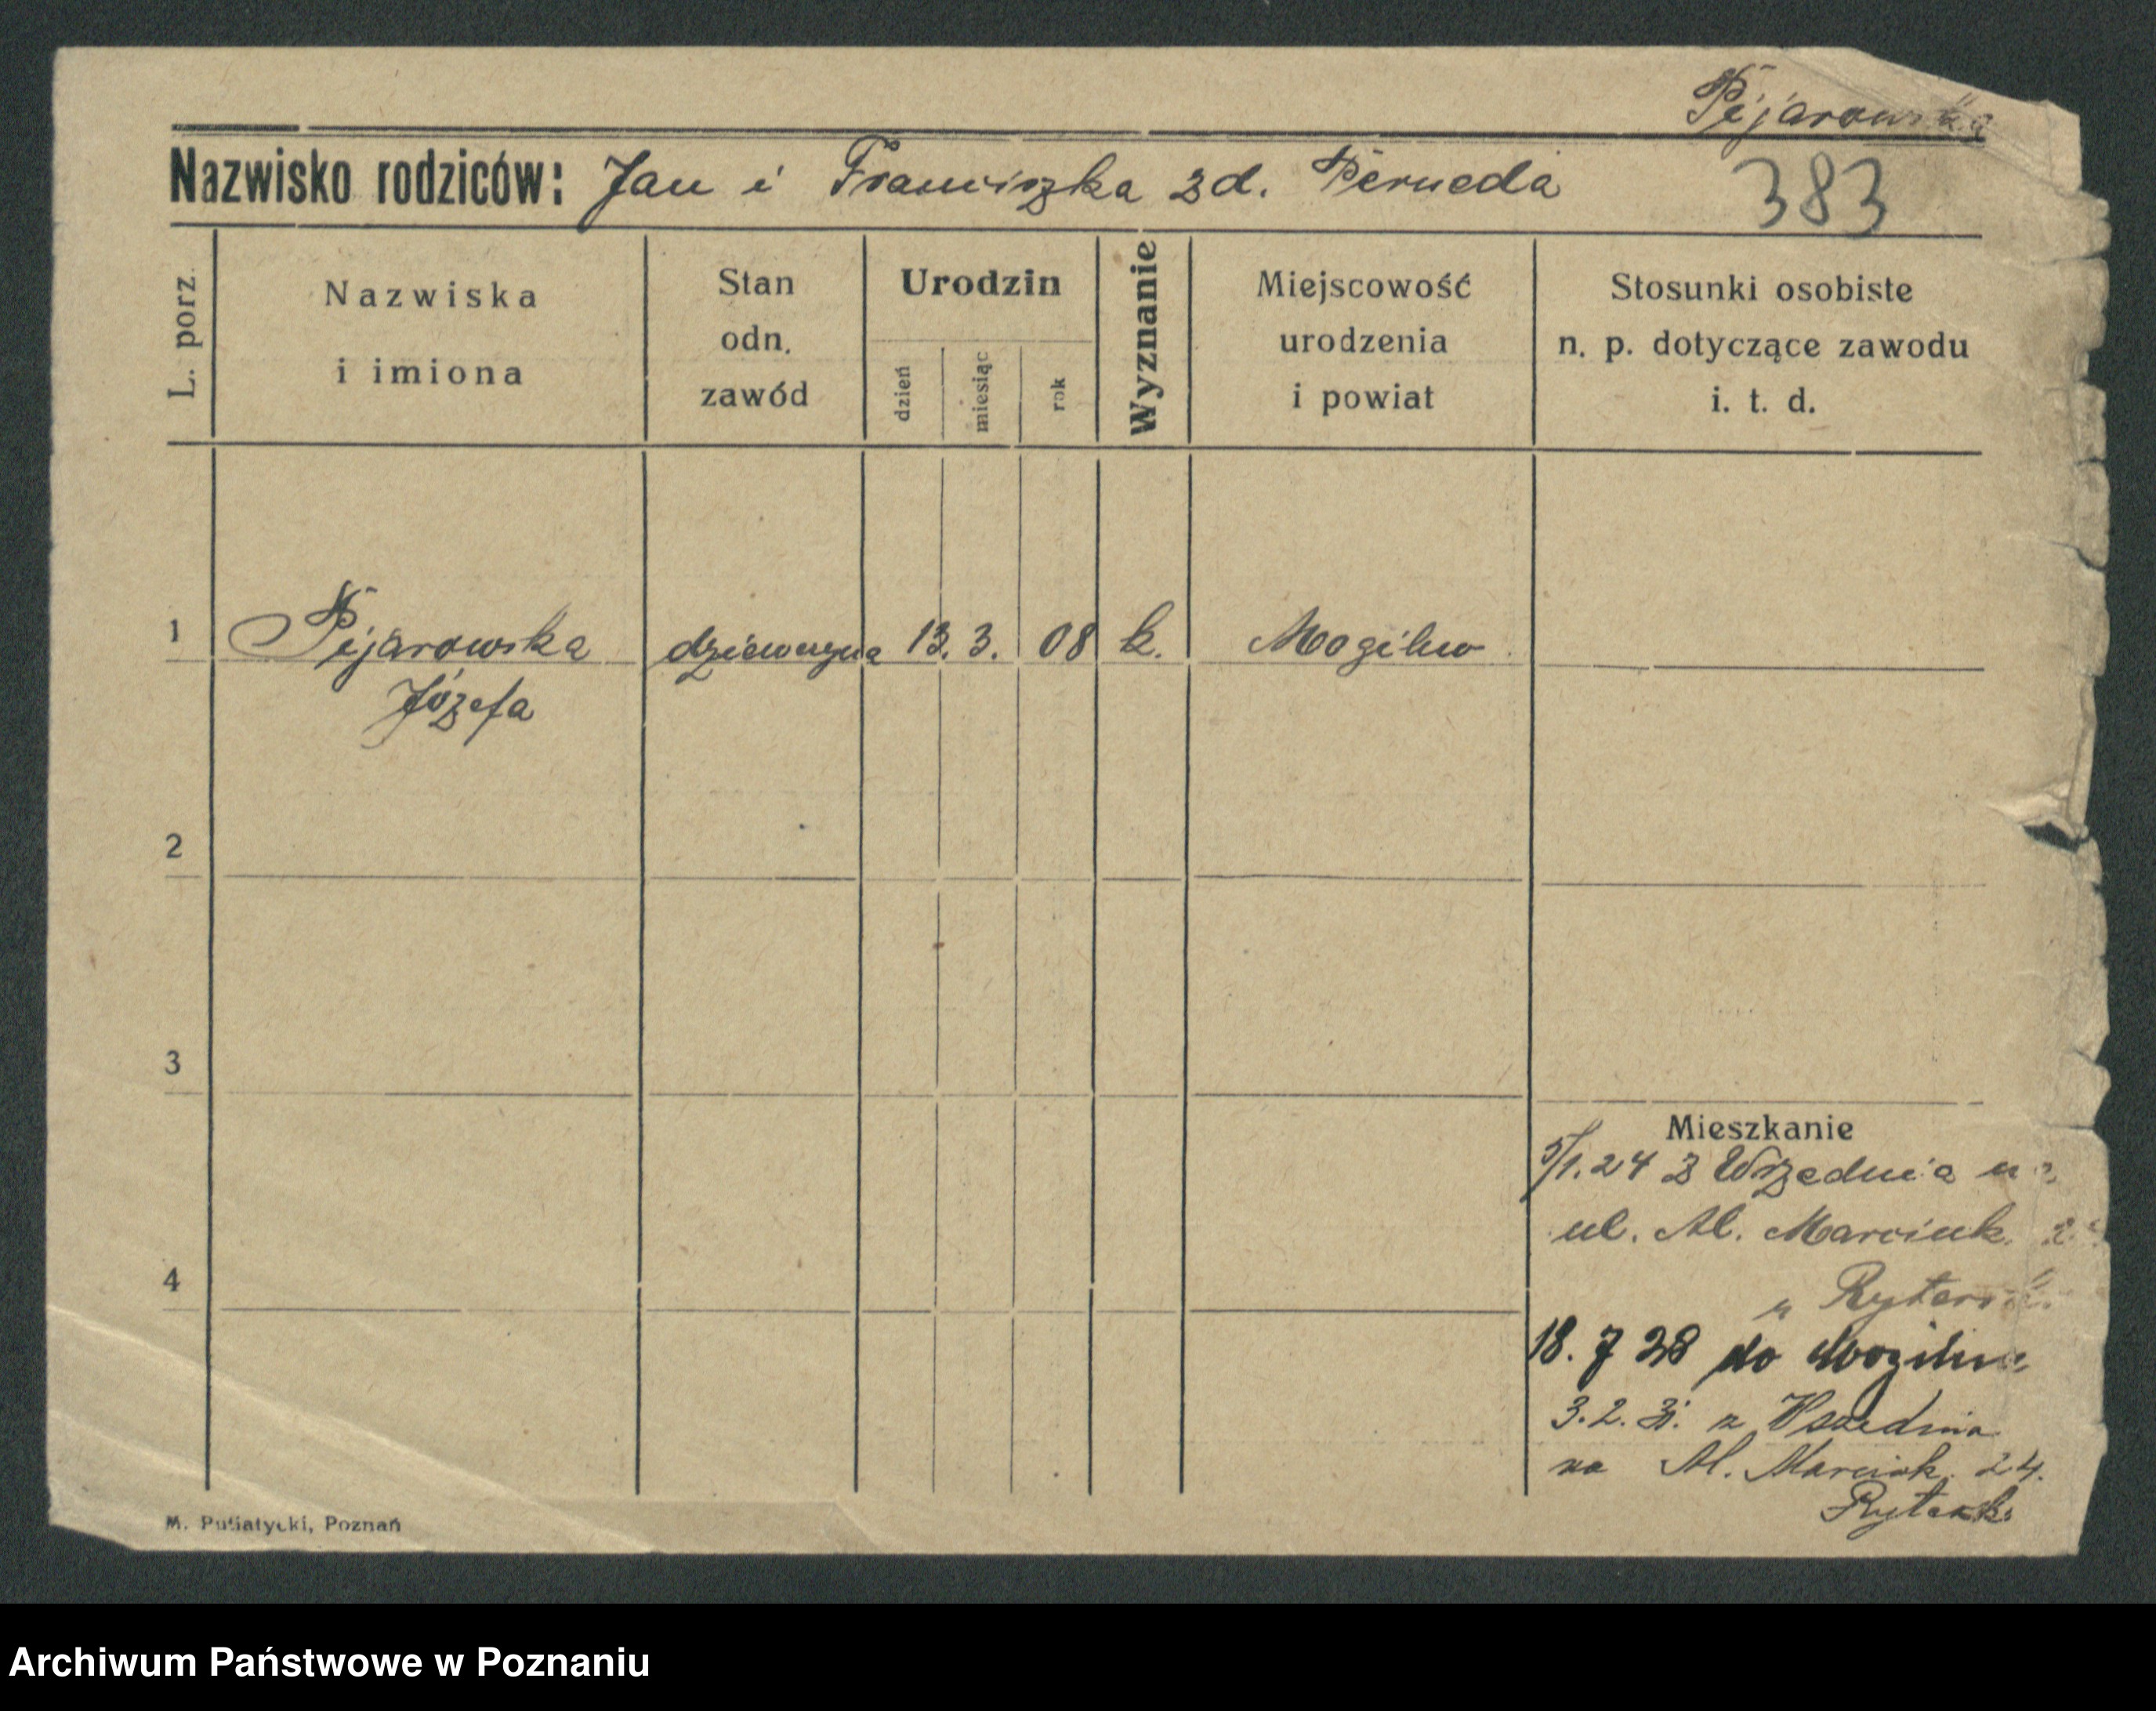 Pijarowska
Nazwisko rodziców: Jan i Franciszka zd. Perneda
383
L. porz.
Nazwiska
i imiona
Stan
odn.
zawód
Urodzin
dzień
miesiąc
rok
Wyznanie
Miejscowość
urodzenia
i powiat
Stosunki osobiste
n. p. dotyczące zawodu
i. t. d.
1 Pijarowska dziewczyna 13. 3. 08 k. Mogilno
Józefa
2
3
Mieszkanie
5/1.24 z Wszednia
ul. Al. Marcink.
4
u
18. 7 28 do Mogilna
3.2. 31. z Wszednia
na Al. Marcink. 24.
M. Putiatycki, Poznań
Archiwum Państwowe w Poznaniu